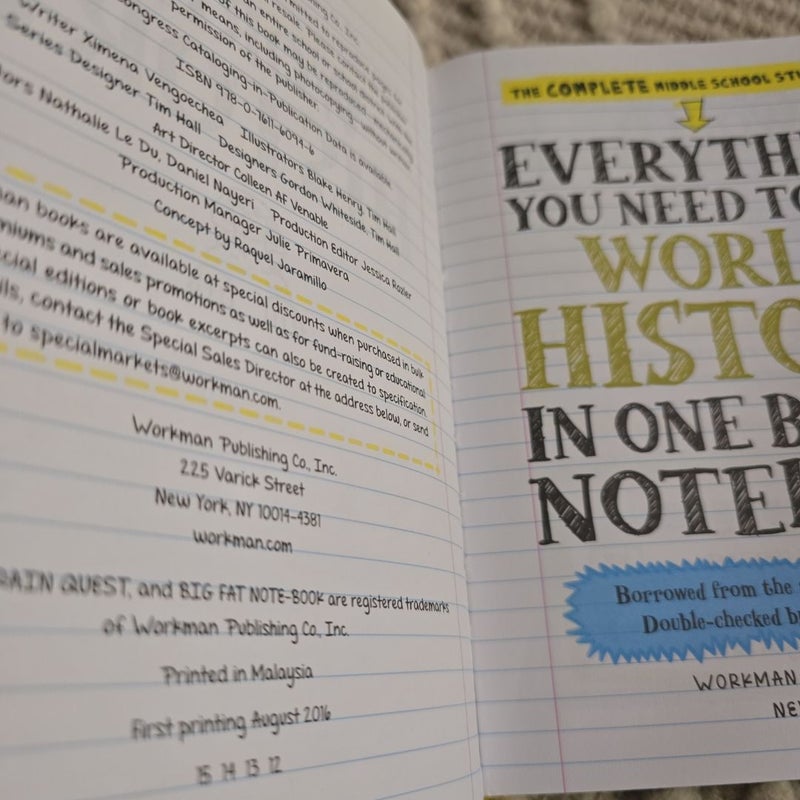 permitted to reproduce pages for
resale. Please contact
an entire school or school district
of this book may be reproduced
means, including photocopying—without written
permission of the publisher.
Congress Cataloging-in-Publication Data is available
ISBN 978-0-7611-6094-6
Writer Ximena Vengoechea Illustrators Blake Henry, Tim Hall
Series Designer Tim Hall Designers Gordon Whiteside, Tim Hall
Art Director Colleen AF Venable
Nathalie Le Du, Daniel Nayeri Production Editor Jessica Rozler
Production Manager Julie Primavera
Concept by Raquel Jaramillo
books are available at special discounts when purchased in bulk
and sales promotions as well as for fund-raising or educational
editions or book excerpts can also be created to specification.
contact the Special Sales Director at the address below, or send
to specialmarkets@workman.com.
Workman Publishing Co., Inc.
225 Varick Street
New York, NY 10014-4381
workman.com
QUEST, and BIG FAT NOTE-BOOK are registered trademarks
of Workman Publishing Co., Inc.
Printed in Malaysia
First printing August 2016
15 14 13 12
THE COMPLETE MIDDLE SCHOOL
EVERYTH
YOU NEED TO
WORL
HISTO
IN ONE B
NOTE
Borrowed from the
Double-checked b
WORKMAN
NE